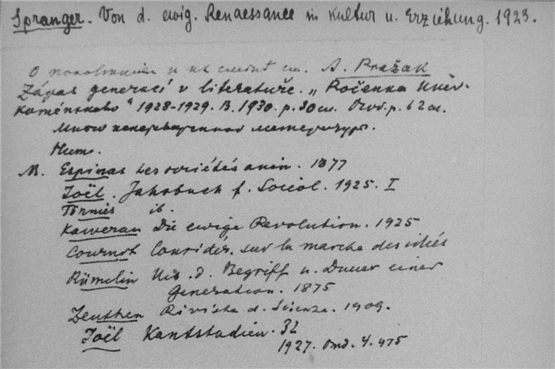 Spranger. Von d. ewig. Renaissance in Kultur u. Erziehung. 1923.
О поколениях и их смене см. A. Pražak
Zápas generací v literatuře. „Ročenka Univ.
Koménskeho“ 1928-1929. B. 1930. p. 30 сл. Отд. p. 62 сл.
Много литературы.
Hum.
M. Espinas Les sociétés anim. 1877
Joël. Jahrbuch f. Sociol. 1925. I
Tönnies ib.
Kawerau Die ewige Revolution. 1925
Cournot Consider. sur la marche des idées
Rümelin Üb. d. Begriff u. Dauer einer
Generation. 1875
Zeuthen Rivista d. Scienza. 1909.
Joël Kantstudien. 32
1927. Отд. 475